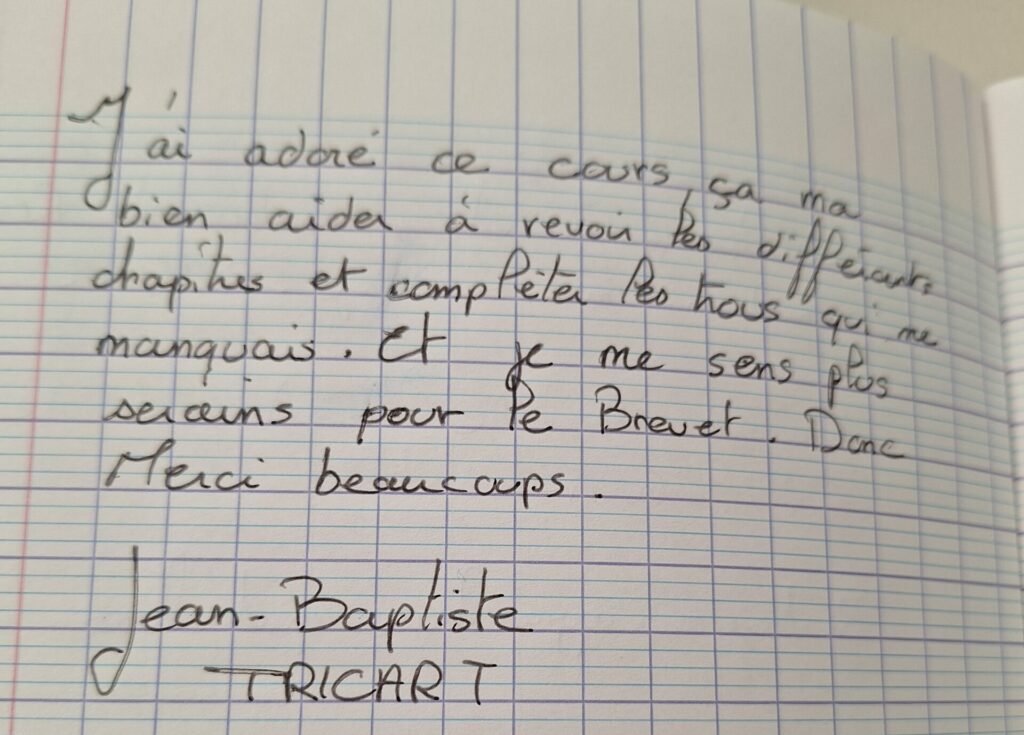 J'ai adoré ce cours, sa ma
bien aider à revoir les différants
chapitres et complèter les trous qui me
manquais. Et je me sens plus
sereins pour le Brevet. Donc
Merci beaucoups.
Jean-Baptiste
TRICART